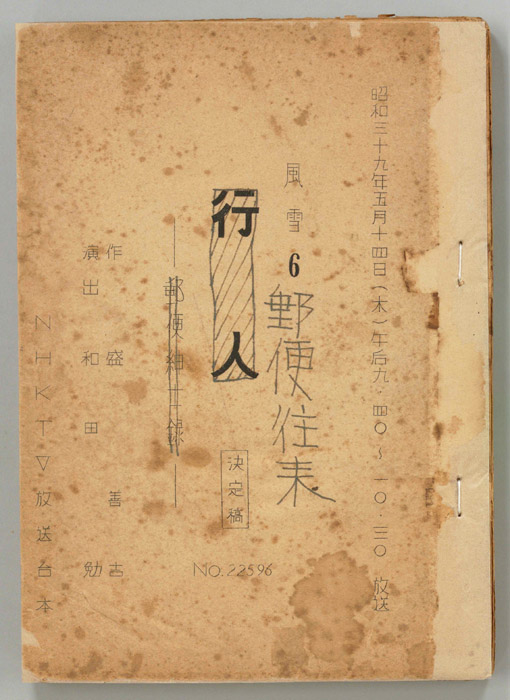 昭和三十九年五月十四日(木)午后九・四〇～一〇・三〇 放送
風雪6
郵便往来
行人
―郵便紬二録―
決定稿
NO.22596
作 盛善吉
演出 和田勉
NHKTV放送台本